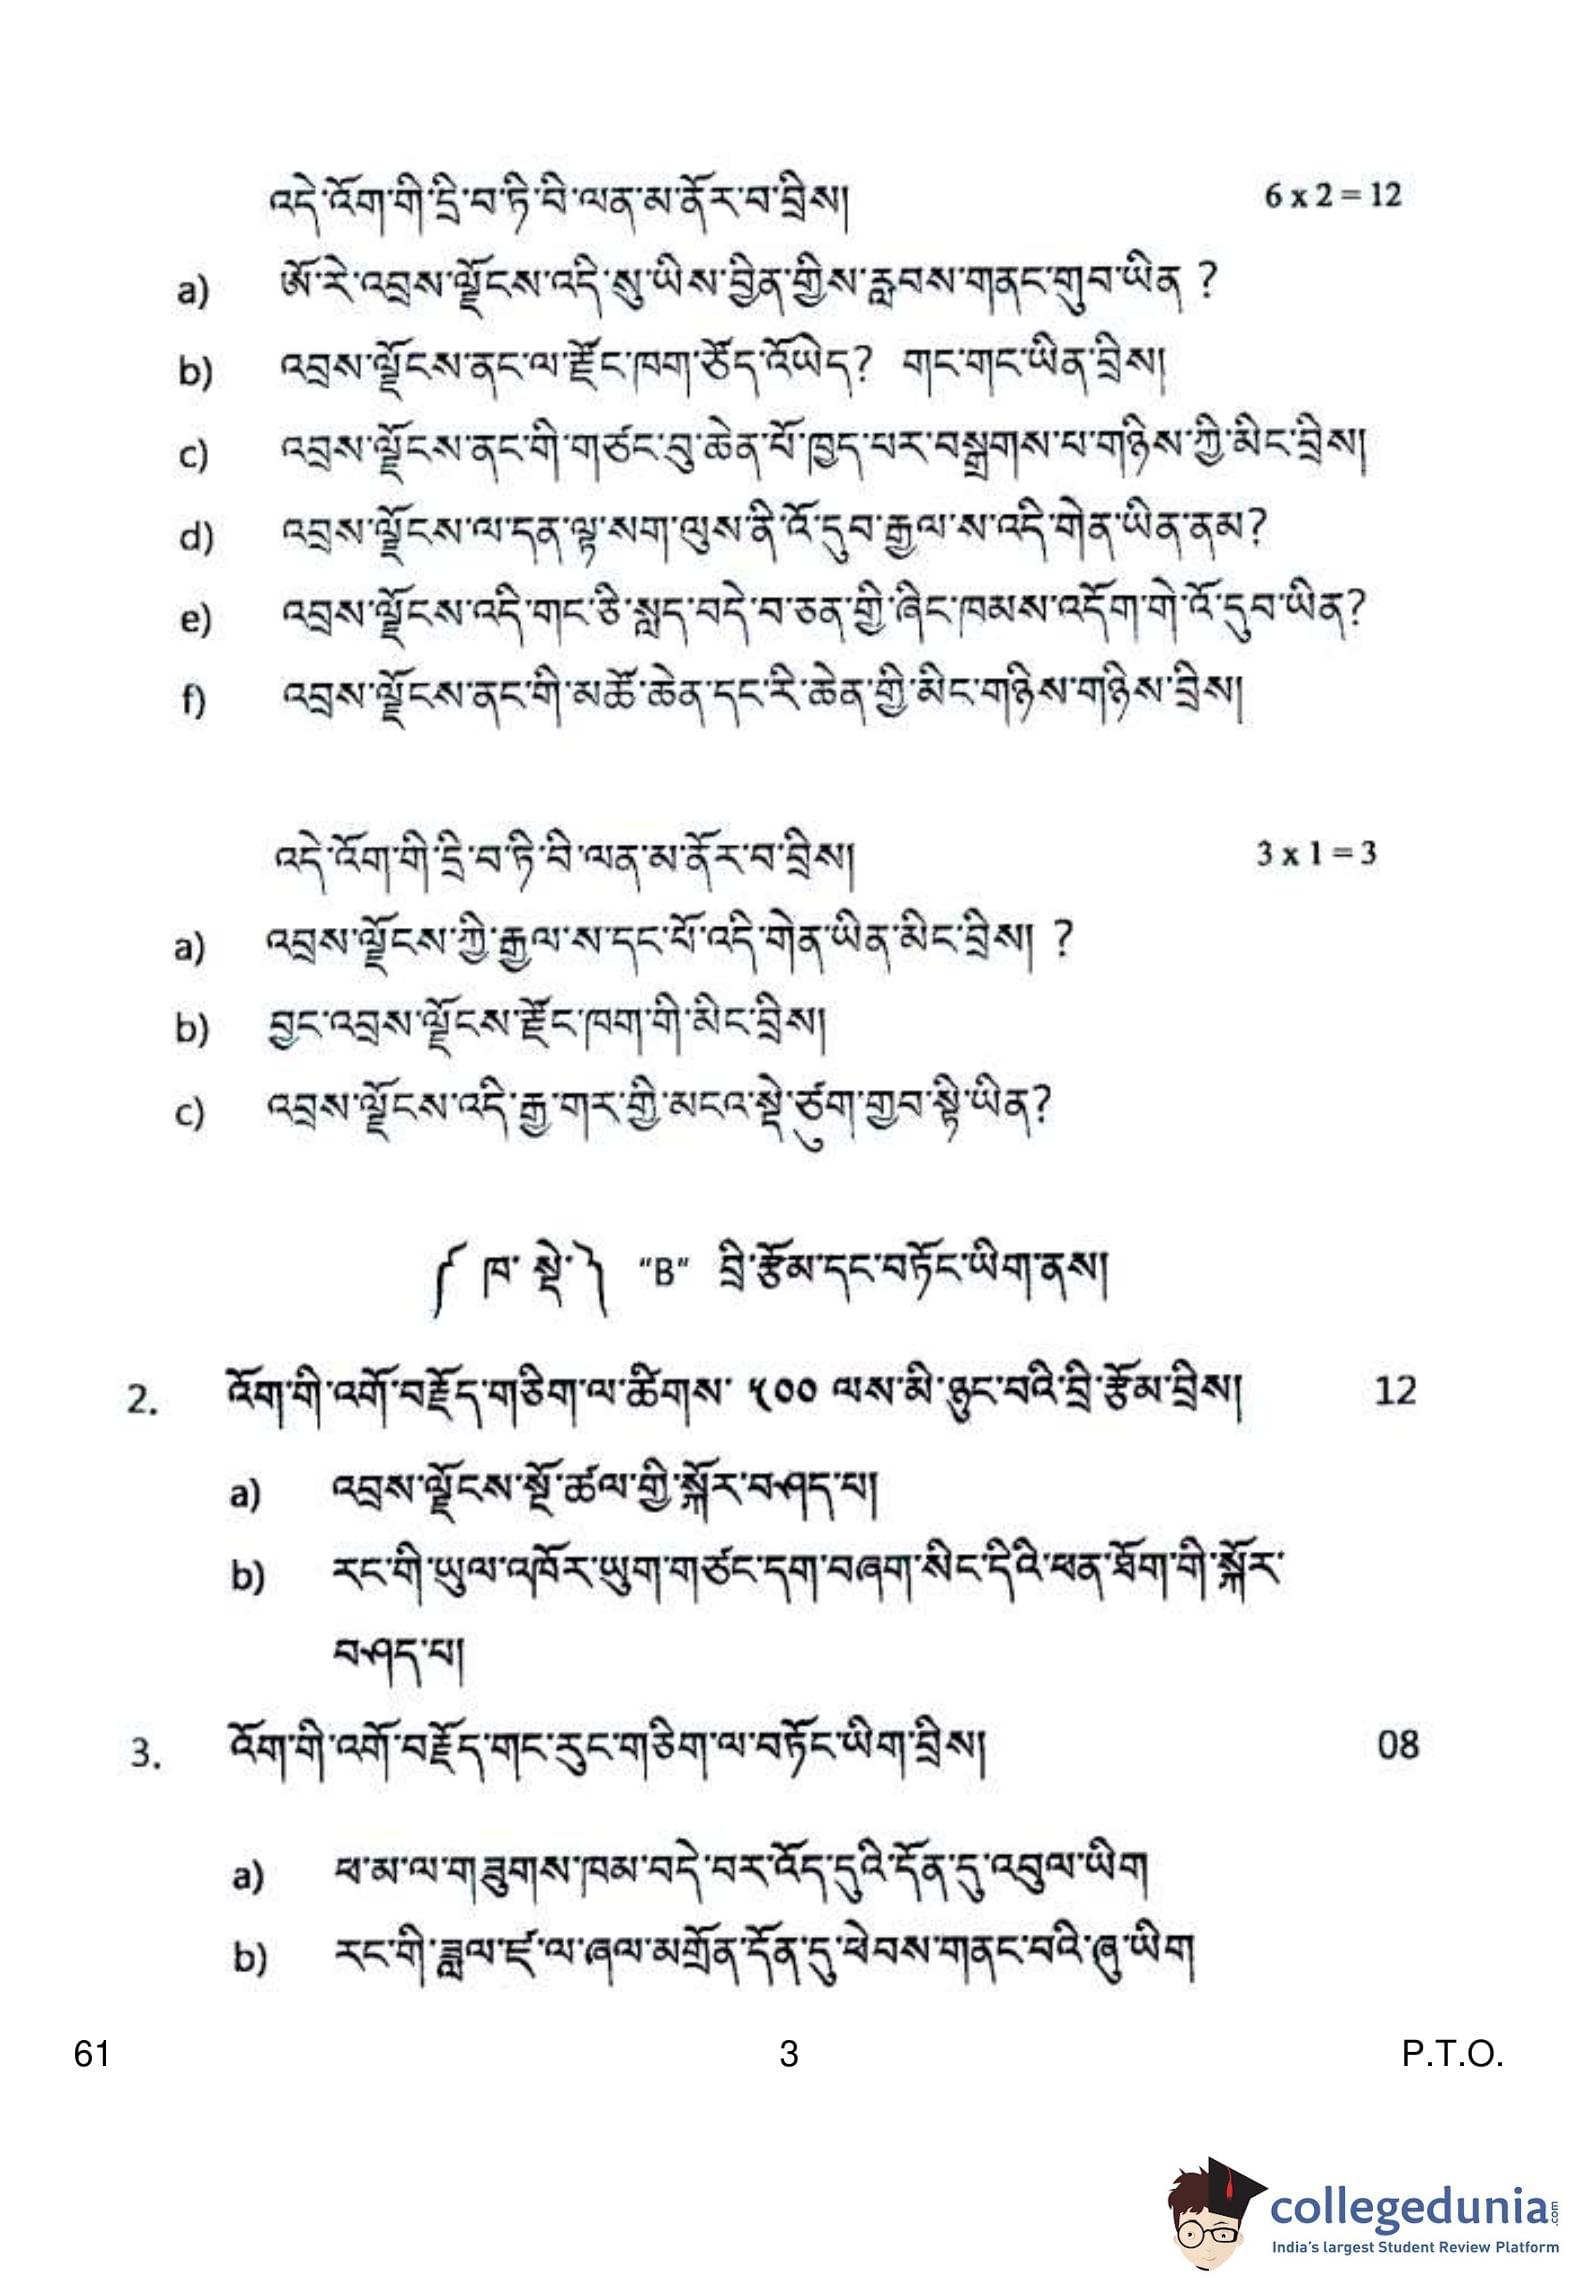 འདེ་འོག་གི་དྲི་བ་ཏི་བི་ལན་མ་ནོར་བ་བྲིས། 6 x 2 = 12
a) ཨོ་རེ་འབྲས་ལྗོངས་འདི་སུ་ཡིས་བྱིན་གྱིས་རླབས་གནང་གུབ་ཡིན ?
b) འབྲས་ལྗོངས་ནང་ལ་རྫོང་ཁག་ཙོད་འོཡེད? གང་གང་ཡིན་བྲིས།
c) འབྲས་ལྗོངས་ནང་གི་གཙང་བུ་ཆེན་པོ་ཁྱད་པར་བསྒྲགས་པ་གཉིས་ཀྱི་མིང་བྲིས།
d) འབྲས་ལྗོངས་ལ་དན་ལྟ་སག་ལུས་ནི་འོ་དུབ་རྒྱལ་ས་འདི་གེན་ཡིན་ནམ?
e) འབྲས་ལྗོངས་འདི་གང་ཅི་སླད་བདེ་བ་ཅན་གྱི་ཞིང་ཁམས་འདོག་གེ་འོ་དུབ་ཡིན?
f) འབྲས་ལྗོངས་ནང་གི་མཚོ་ཆེན་དང་རི་ཆེན་གྱི་མིང་གཉིས་གཉིས་བྲིས།
འདེ་འོག་གི་དྲི་བ་ཏི་བི་ལན་མ་ནོར་བ་བྲིས། 3 x 1 = 3
a) འབྲས་ལྗོངས་ཀྱི་རྒྱལ་ས་དང་པོ་འདི་གེན་ཡིན་མིང་བྲིས། ?
b) བྱང་འབྲས་ལྗོངས་རྫོང་ཁག་གི་མིང་བྲིས།
c) འབྲས་ལྗོངས་འདི་རྒྱ་གར་གྱི་མངའ་སྡེ་ཙུག་གྱབ་སྟི་ཡིན?
༼ ཁ་ སྡེ་༽ “B” བྲི་རྩོམ་དང་བཏོང་ཡིག་ནས།
2. འོག་གི་འགོ་བརྗོད་གཅིག་ལ་ཚིགས་ ༥༠༠ ལས་མི་ཉུང་བའི་བྲི་རྩོམ་བྲིས། 12
a) འབྲས་ལྗོངས་སྔོ་ཚལ་གྱི་སྐོར་བཤད་པ།
b) རང་གི་ཡུལ་འཁོར་ཡུག་གཙང་དག་བཞག་སིང་དིའི་ཕན་ཐོག་གི་སྐོར་
བཤད་པ།
3. འོག་གི་འགོ་བརྗོད་གང་རུང་གཅིག་ལ་བཏོང་ཡིག་བྲིས། 08
a) ཕ་མ་ལ་གཟུགས་ཁམ་བདེ་བར་འོད་དུའི་དོན་དུ་འབུལ་ཡིག
b) རང་གི་ཟླལ་ཛ་ལ་ཞལ་མགྲོན་དོན་དུ་ཕེབས་གནང་བའི་ཞུ་ཡིག
61 3 P.T.O.
collegedunia.com
India's largest Student Review Platform